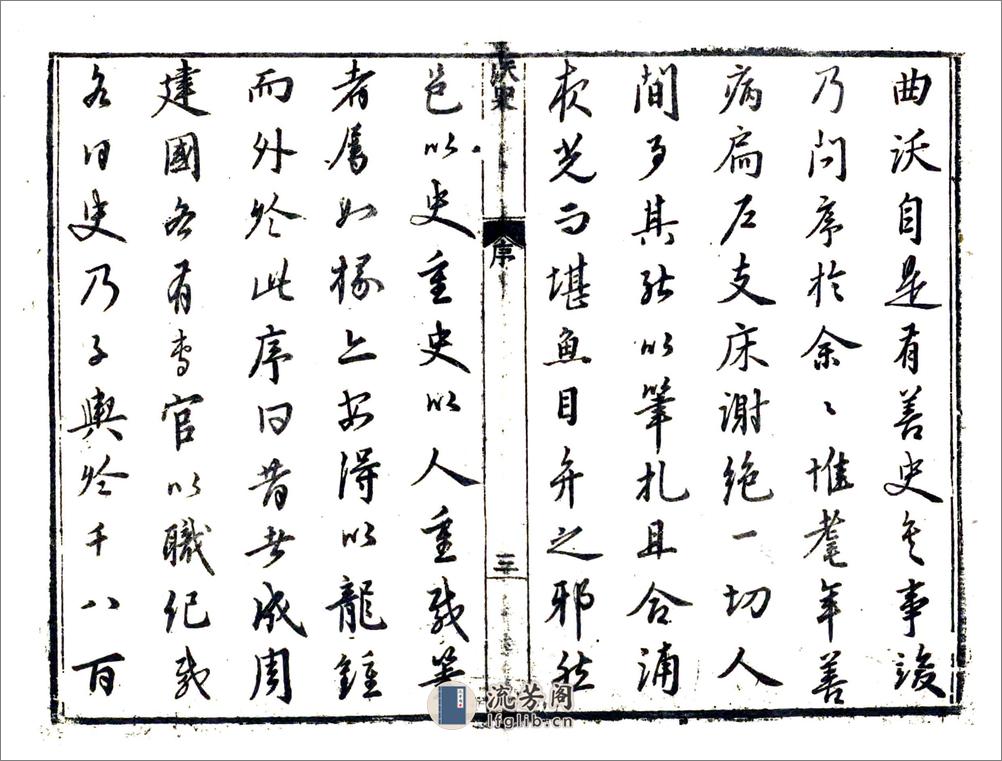 曲沃自是有善史矣事竣
乃問序於余〻惟耄年善
病扁戶支床謝絕一切人
間事其能以筆札且合浦
夜光而堪魚目弁之邪然
沃史
序
三
邑以史重史以人重載筆
者属如椽亡安得以龍鍾
而外於此序曰昔者成周
建國各有專官以職紀載
名曰史乃子輿於千八百
流芳阁
lfglib.cn